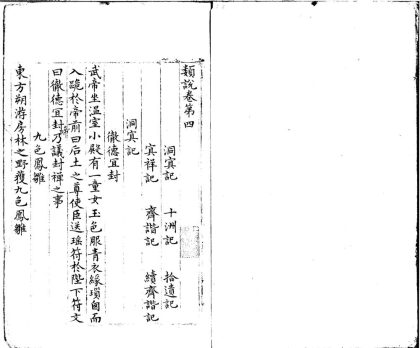 類說卷第四
洞㝠記 十洲記 拾遺記
㝠祥記 齊諧記 續齊諧記
洞㝠記
徹德宜封
武帝坐温室小殿有一童女玉色服青衣緣瑣自而
入跪於帝前曰后土之尊使臣送瑶符於陛下符文
曰徹德宜封乃議封禪之事
九色鳳雛
東方朔游房林之野獲九色鳳雛